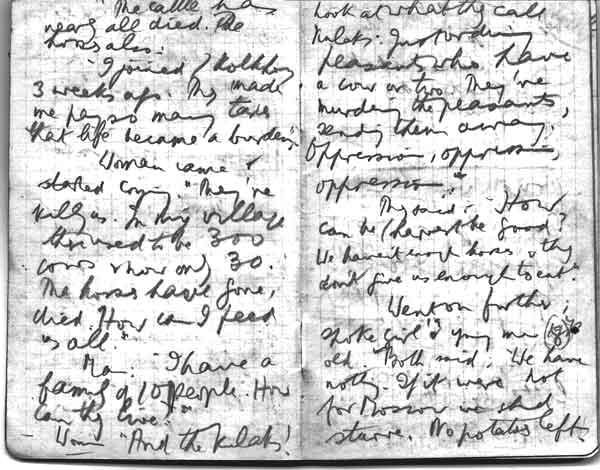 "The cattle has
nearly all died. The
horses also.
"I joined / Kolkhoz
3 weeks ago. They made
me pay so many taxes
that life became a burden."
Woman came &
started crying "They're
killing us. In my village
there used to be 300
cows & now only 30.
The horses have gone,
died. How can I feed
us all."
Man: "I have a
family of 10 people. How
can they live?"
Woman "And the kulaks!
Look at what they call
kulaks. Just ordinary
peasants who have
a cow or two. They're
murdering the peasants,
sending them away.
Oppression, oppression,
oppression."
They said:- "How
can the harvest be good?
We haven't enough horses & they
don't give us enough to eat."
Went on further;
spoke girl & young man (18)
old. Both said, "We have
nothing. If it were not
for Moscow we shd
starve. No potatoes left.